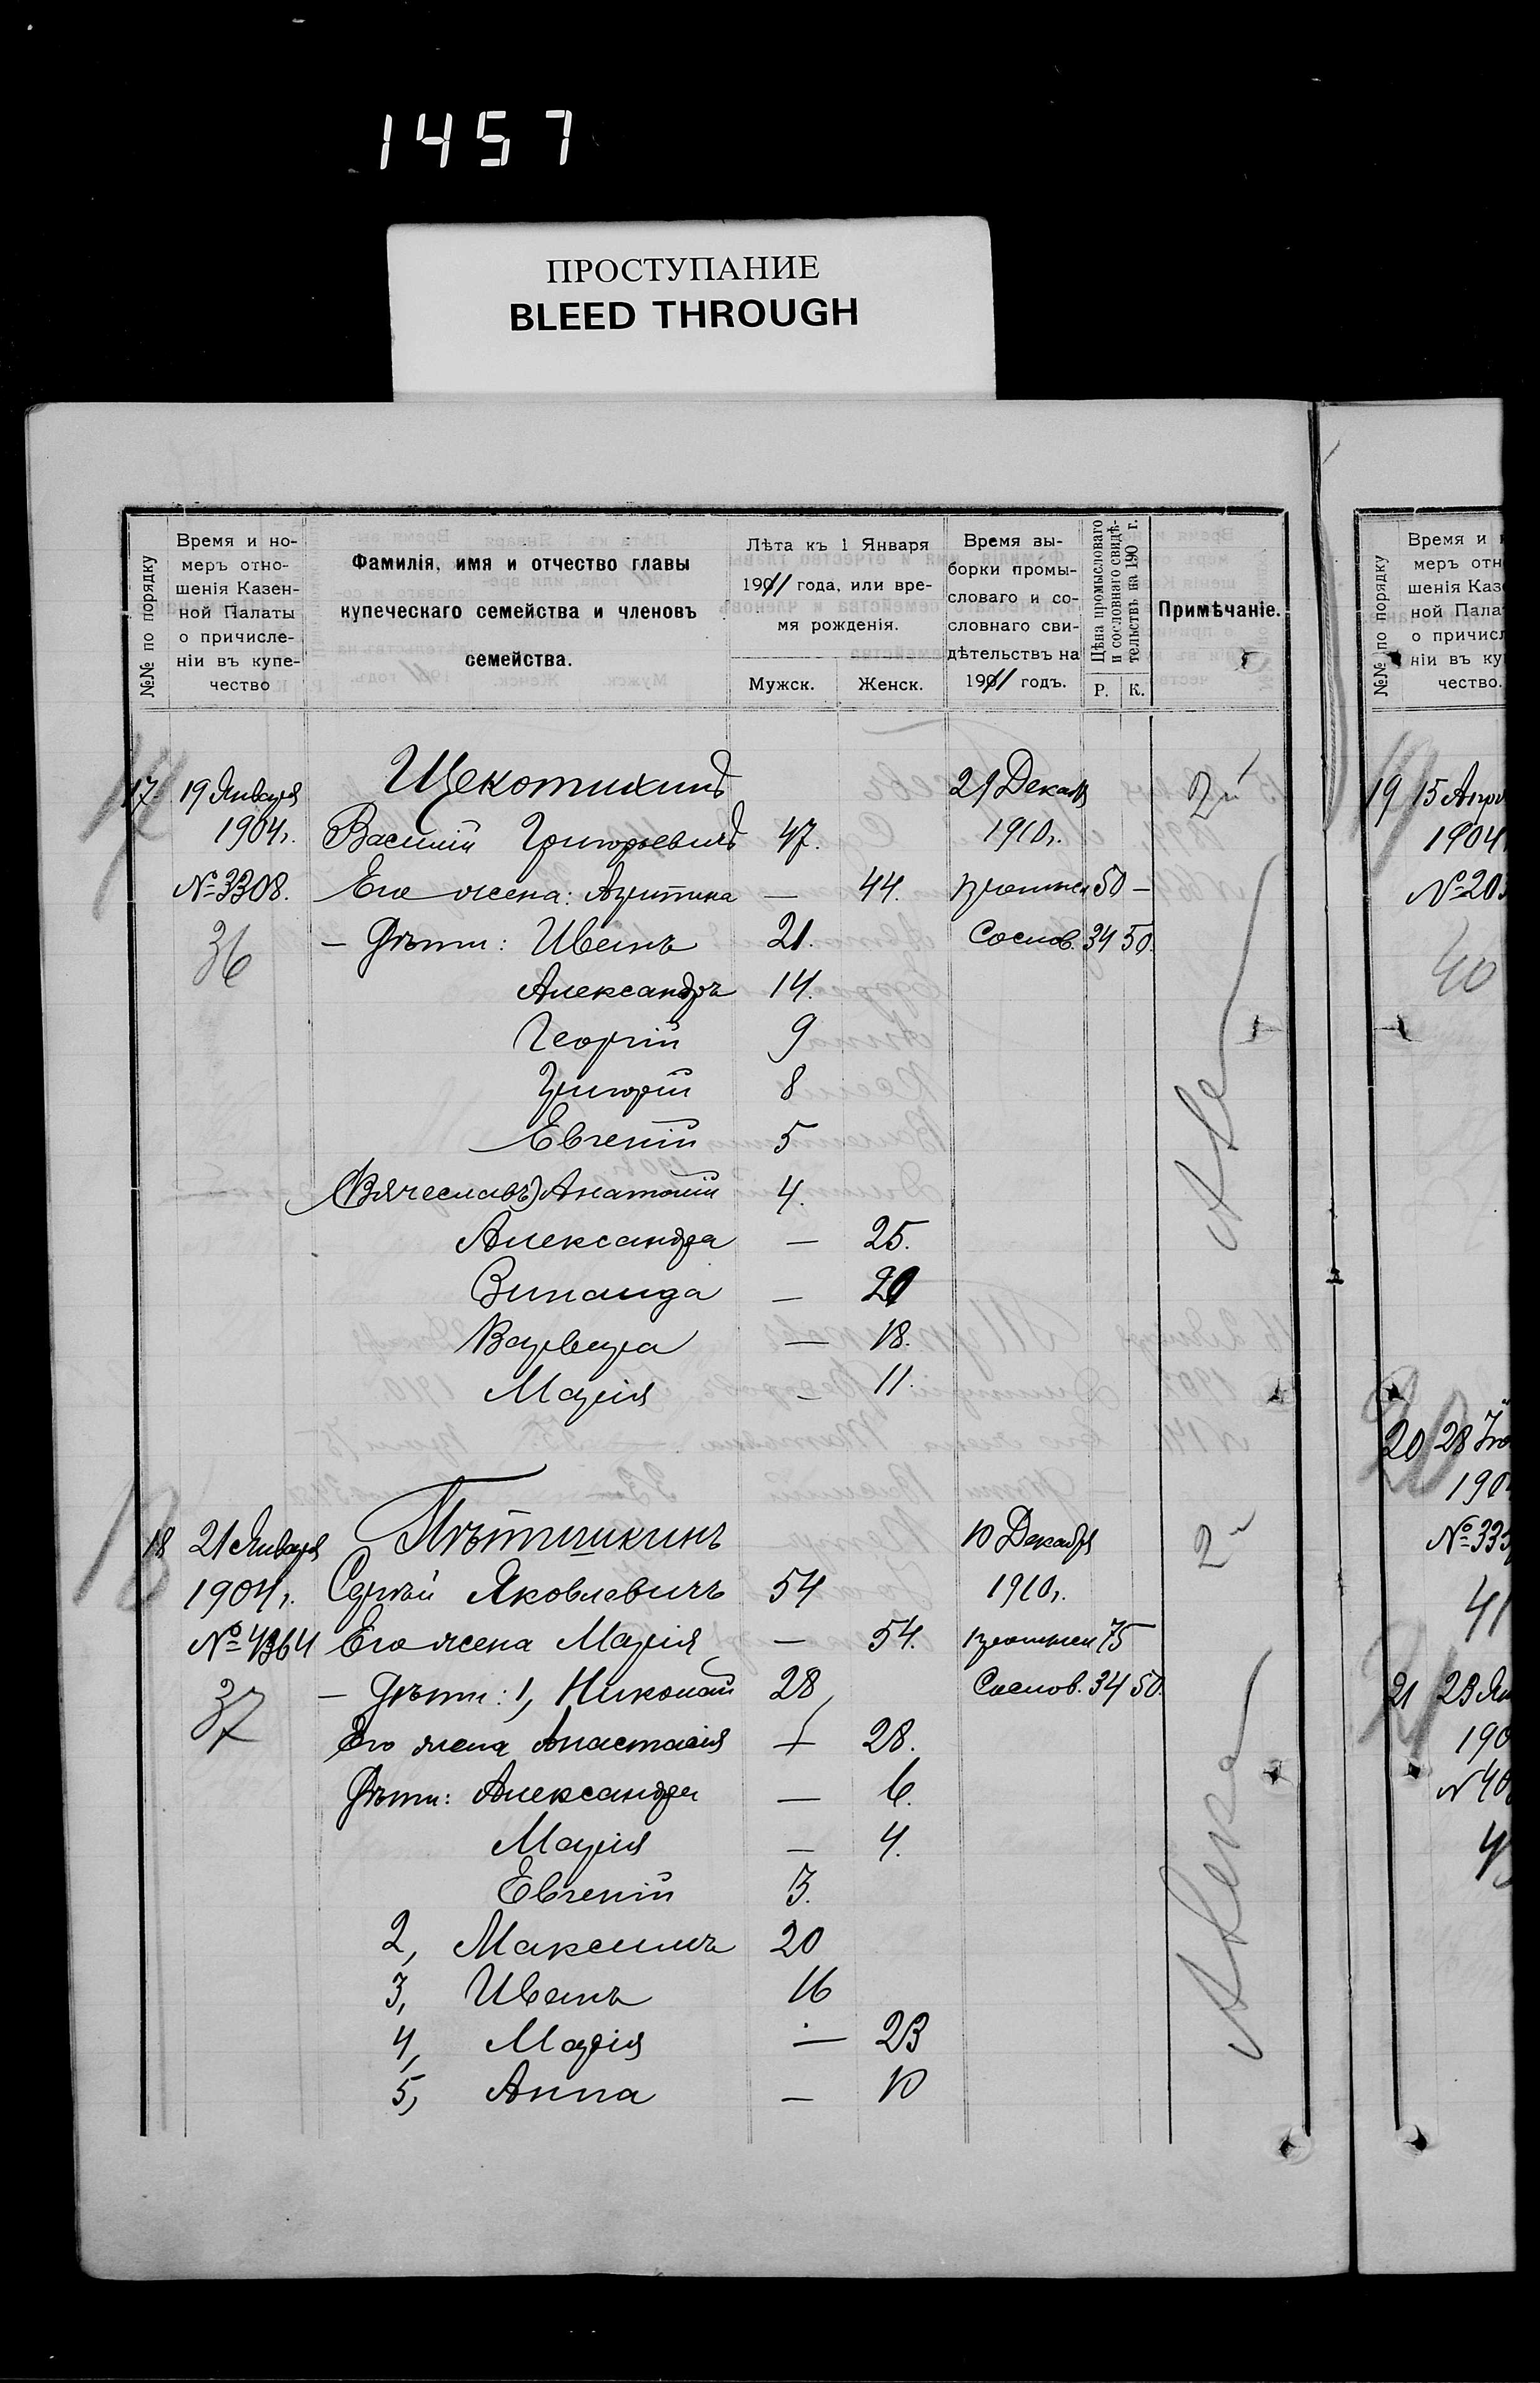 1457
ПРОСТУПАНИЕ
BLEED THROUGH
№№ по порядку
Время и но-
меръ отно-
шенія Казен-
ной Палаты
о причисле-
ніи въ купе-
чество
Фамилія, имя и отчество главы
купеческаго семейства и членовъ
семейства.
Лѣта къ 1 Января
1911 года, или вре-
мя рожденія.
Мужск. Женск.
Время вы-
борки промы-
словаго и со-
словнаго сви-
дѣтельствъ на
1911 годъ.
Цѣна промысловаго
и сословнаго свидѣ-
тельствъ на 190 г.
Р. К.
Примѣчаніе.
17 19 Января Щекотихинъ 29 Декаб. 2й
1904г. Василій Григорьевичъ 47. 1910г.
№3308. Его жена: — 44. промысл 50 —
36 — Дѣти: Иванъ 21. Сослов. 34 50.
Александръ 14.
Георгій 9
Григорій 8
Евгеній 5
(Вячеславъ) Анатолій 4.
Александра — 25.
Зинаида —
Варвара — 18.
Марія — 11.
18 21 Января Пѣтишкинъ 10 Декабря 2й
1904г. Сергѣй Яковлевичъ 54 1910г.
№4364 Его жена Марія — 54. промысл 75
37 — Дѣти: 1, Николай 28 Сослов. 34 50.
Его жена Анастасія — 28.
Дѣти: Александра — 6.
Марія — 4.
Евгеній 3.
2, Максимъ 20
3, Иванъ 16
4, Марія — 23
5, Анна — 10
№№ по порядку
Время и
меръ отн
шенія Каз
ной Пала
о причис
ніи въ ку
чество.
19 15 Апр
1904
№203
40
20 28
190
№333
41
21 23 Ян
190
№40